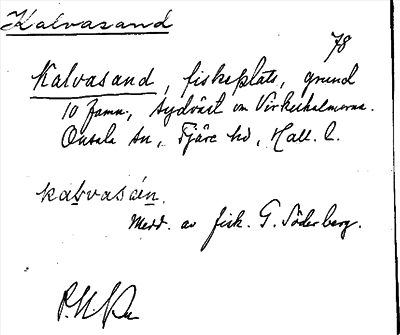 Kalvasand
78
Kalvasand, fiskeplats, grund
10 famn, sydväst om Virkeskalmarna.
Onsala sn, Fjäre hd, Hall. l.
kalvasán.
Medd. av fisk. G. Söderberg.